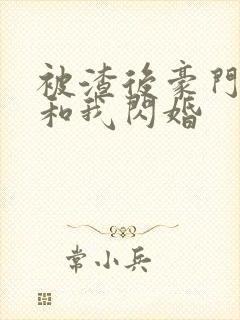 被渣後豪門
和我閃婚
常小兵